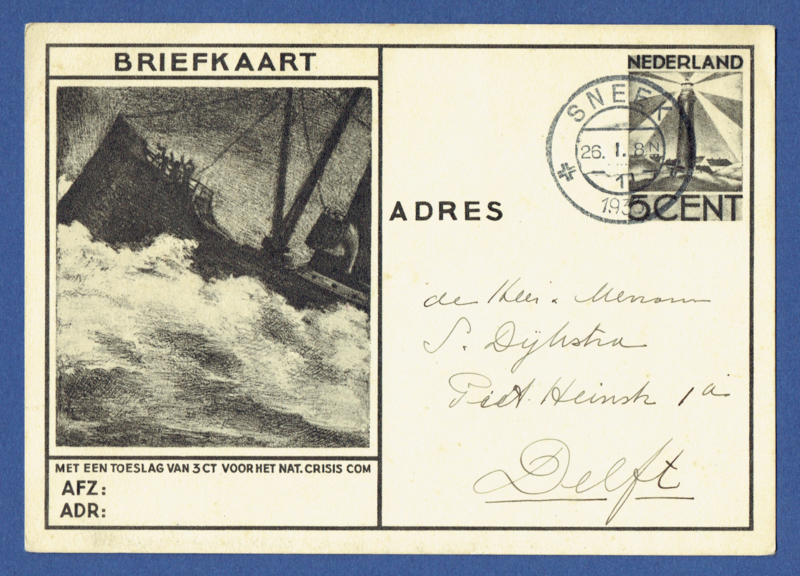 BRIEFKAART
NEDERLAND
SNEEK
26. 1. 8N
193
5 CENT
ADRES
de Heer. Mevrouw
S. Dijkstra
Piet Heinstr 1a
Delft
MET EEN TOESLAG VAN 3 CT VOOR HET NAT. CRISIS COM
AFZ:
ADR: